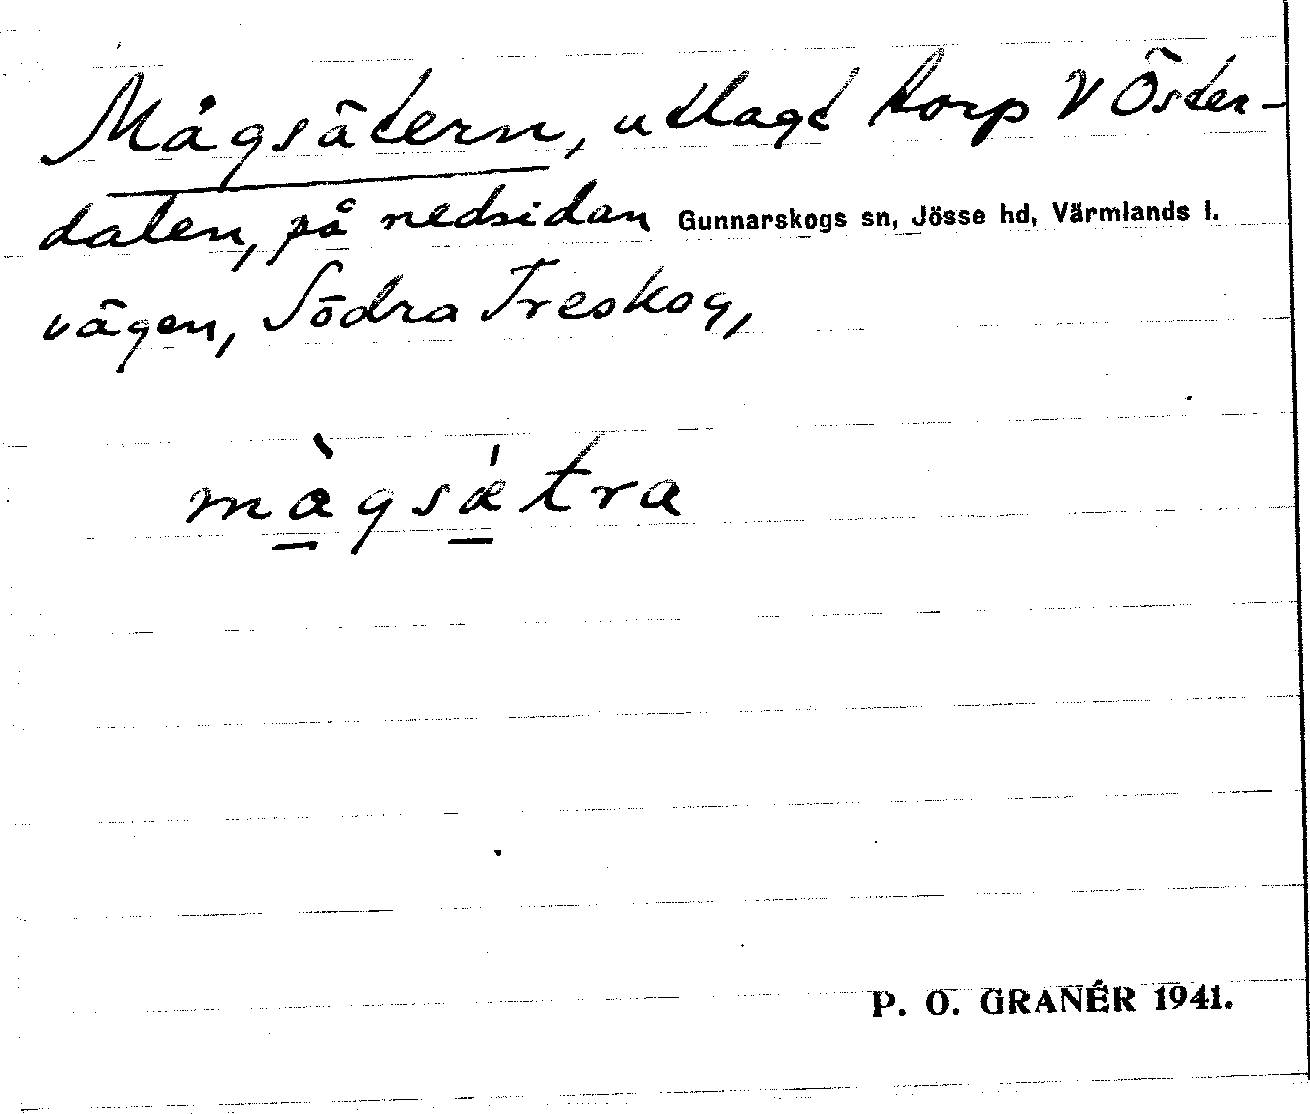 Mågsätern, utlagt torp V Öster-
dalen, på nedsidan Gunnarskogs sn, Jösse hd, Värmlands l.
vägen, Södra Treskog,
màgsǽtra
P. O. GRANÉR 1941.